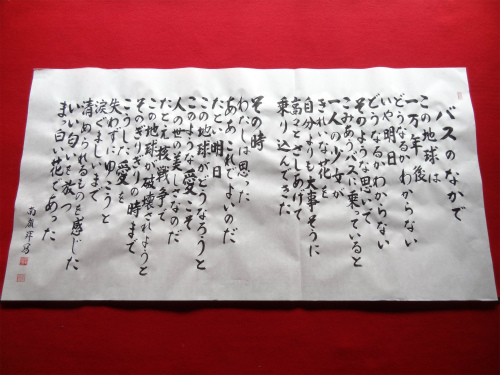 バスのなかで
この地球は
一万年後
どうなるかわからない
いや明日
どうなるかわからない
そのような思いで
こみあうバスに乗っていると
一人の少女が
きれいな花を
自分よりも大事そうに
高々とさしあげて
乗り込んできた
その時
わたしは思った
ああこれでよいのだ
たとい明日
この地球がどうなろうと
このような愛こそ
人の世の美しさなのだ
たとえ核戦争で
この地球が破壊されようと
そのぎりぎりの時まで
こうした愛を
失わずにゆこうと
涙ぐましいまで
清められるものを感じた
いい匂いを放つ
まっ白い花であった
南嶺